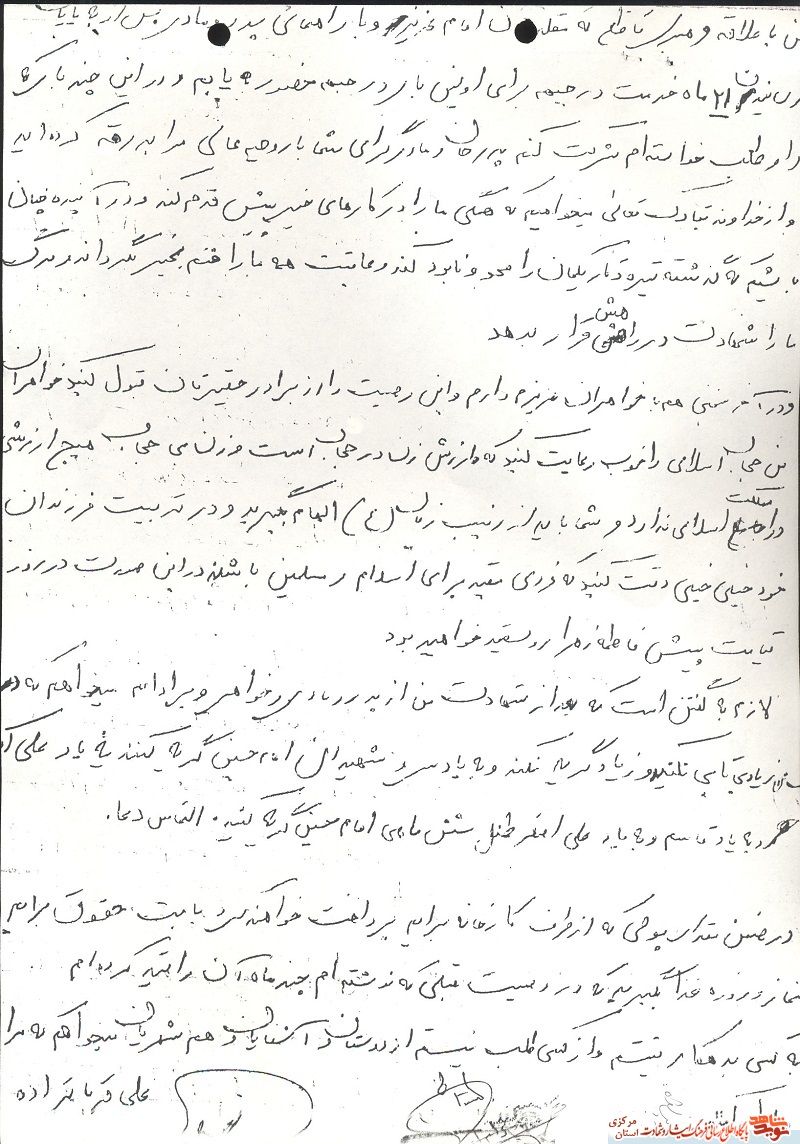 من با علاقه و میل قاطع که مقلد امام عزیز و با راهنمائی پدر و مادری بس ارجه یابیا
۲۱ ماه خدمت در جبهه برای اولین بار در جبهه حضور یابم و در این چند باری که
داوطلب خواسته‌ام شرکت کنم پدرجان و مادر گرامی شما با روحیه عالی مرا بدرقه کرده‌اید
و از خداوند تبارک تعالی میخواهیم که همگی ما را در کارهای خیر پیش قدم کند و در آینده چنان
باشیم که گذشته تیره و تاریکمان را محو و نابود کند و عاقبت همه ما را ختم بخیر گرداند و مرگ
ما را شهادت در راهش قرار بدهد
و در آخر سخنی هم با خواهران عزیزم دارم و این وصیت را از برادر حقیرتان قبول کنید خواهران
من حجاب اسلامی را خوب رعایت کنید که ارزش زن در حجاب است و زن بی حجاب هیچ ارزشی
در مملکت اسلامی ندارد و شما باید از زینب زمان (ع) الهام بگیرید و در تربیت فرزندان
خود خیلی خیلی دقت کنید که فردی مفید برای اسلام و مسلمین باشند در این صورت در روز
قیامت پیش فاطمه زهرا رو سفید خواهید بود
لازم به گفتن است که بعد از شهادت من از پدر و مادر و خواهر و برادرانم میخواهم که در
زیاد بی تابی نکنید و زیاد گریه نکنند و به یاد شهیدان امام حسین گریه کنند به یاد علی اکبر
و به یاد قاسم و به یاد علی اصغر طفل شش ماهه امام حسین گریه کنید. التماس دعا.
در ضمن مقدار پولی که از طرف کارخانه برایم پرداخت خواهند کرد بابت حقوق برایم
نماز و روزه بگیرید که در وصیت قبلی که نوشته‌ام چند ماه آن را قید کرده‌ام
به کسی بدهکار نیستم و از کسی طلب نیستم از دوستان و آشنایان و هم شهریان میخواهم که مرا
علی قربانزاده
نوید شاهد
پایگاه اطلاع رسانی فرهنگ ایثار و شهادت
استان مرکزی